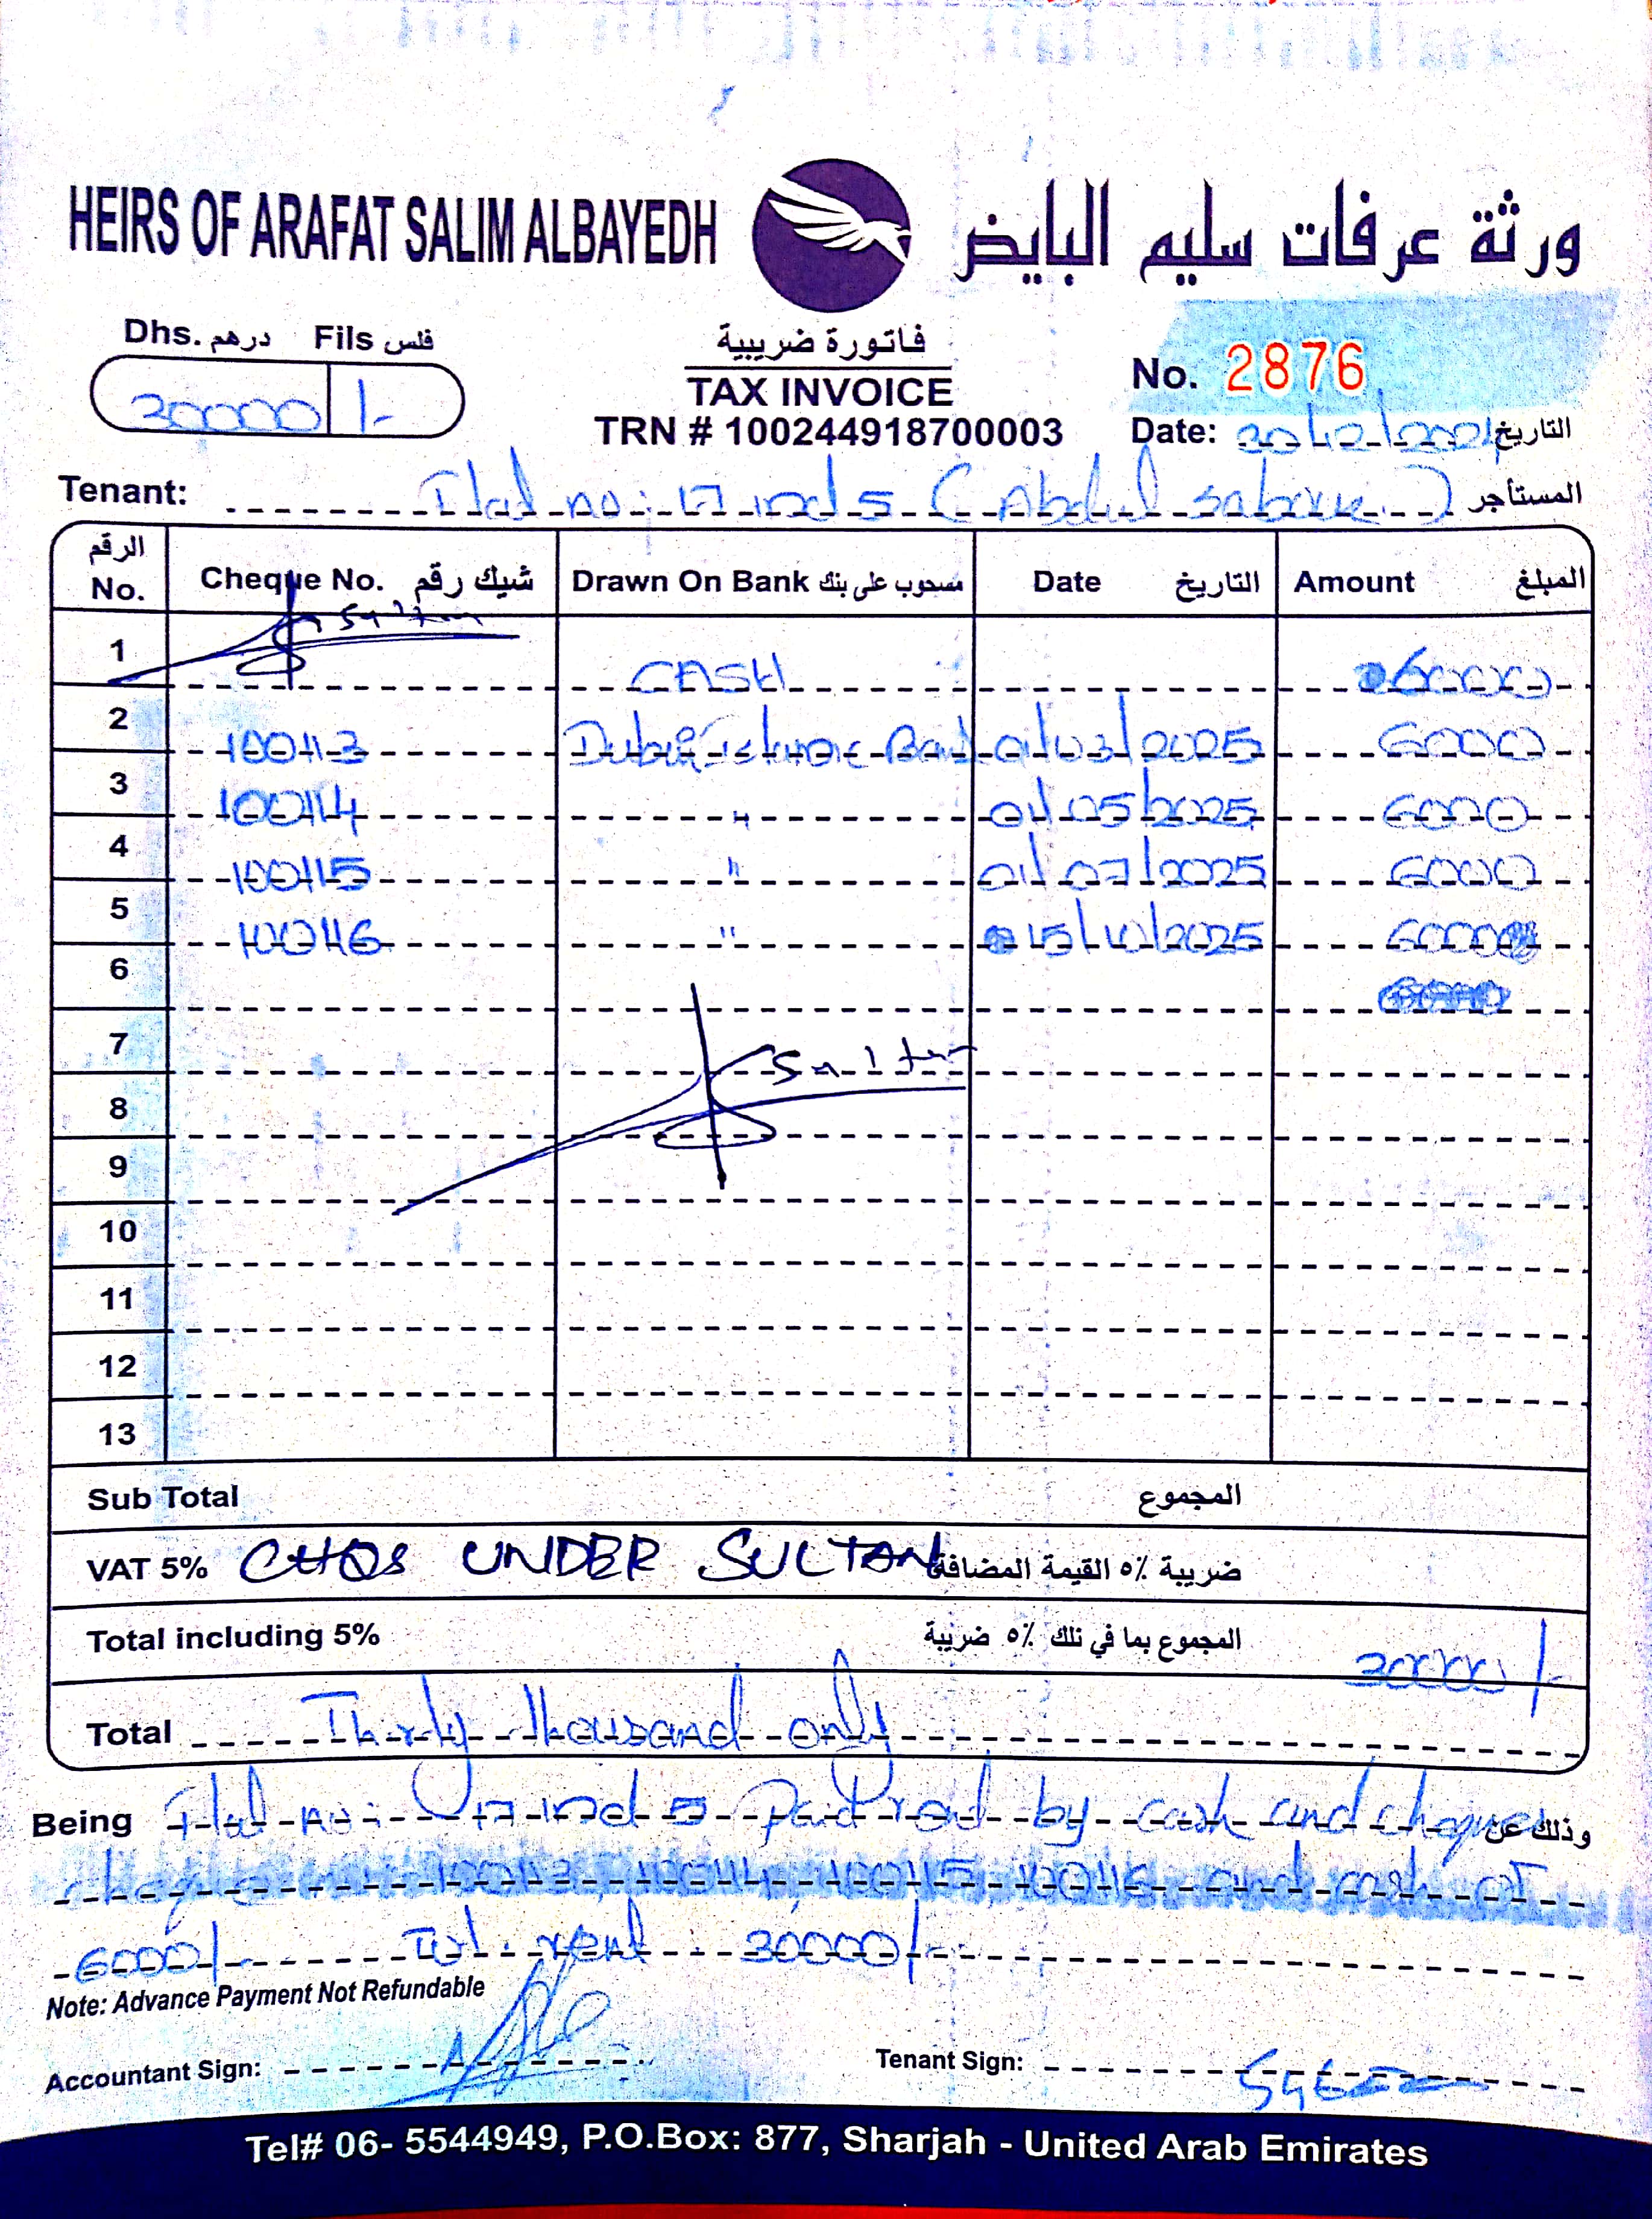 HEIRS OF ARAFAT SALIM ALBAYEDH ورثة عرفات سليم البايض
Dhs. درهم Fils فلس
30000 /-
فاتورة ضريبية
TAX INVOICE
TRN # 100244918700003
No. 2876
Date: 20/12/2024 التاريخ
Tenant: Flat no: 17 ind 5 (Abdul Saboor) المستأجر
الرقم No. Cheque No. شيك رقم Drawn On Bank مسحوب على بنك Date التاريخ Amount المبلغ
Sultan
1 CASH 6000
2 100113 Dubai Islamic Bank 01/03/2025 6000
3 100114 " 01/05/2025 6000
4 100115 " 01/07/2025 6000
5 100116 " 15/10/2025 6000
6
7 Sultan
8
9
10
11
12
13
Sub Total المجموع
VAT 5% CHQS UNDER SULTAN ضريبة ٥٪ القيمة المضافة
Total including 5% المجموع بما في تلك ٥٪ ضريبة 30000/-
Total Thirty thousand only
Being Flat no: 17 ind 5 paid rent by cash and cheque وذلك عن
cheque 100113, 100114, 100115, 100116 and cash of
6000/- Tot. rent 30000/-
Note: Advance Payment Not Refundable
Accountant Sign: Tenant Sign:
Tel# 06- 5544949, P.O.Box: 877, Sharjah - United Arab Emirates